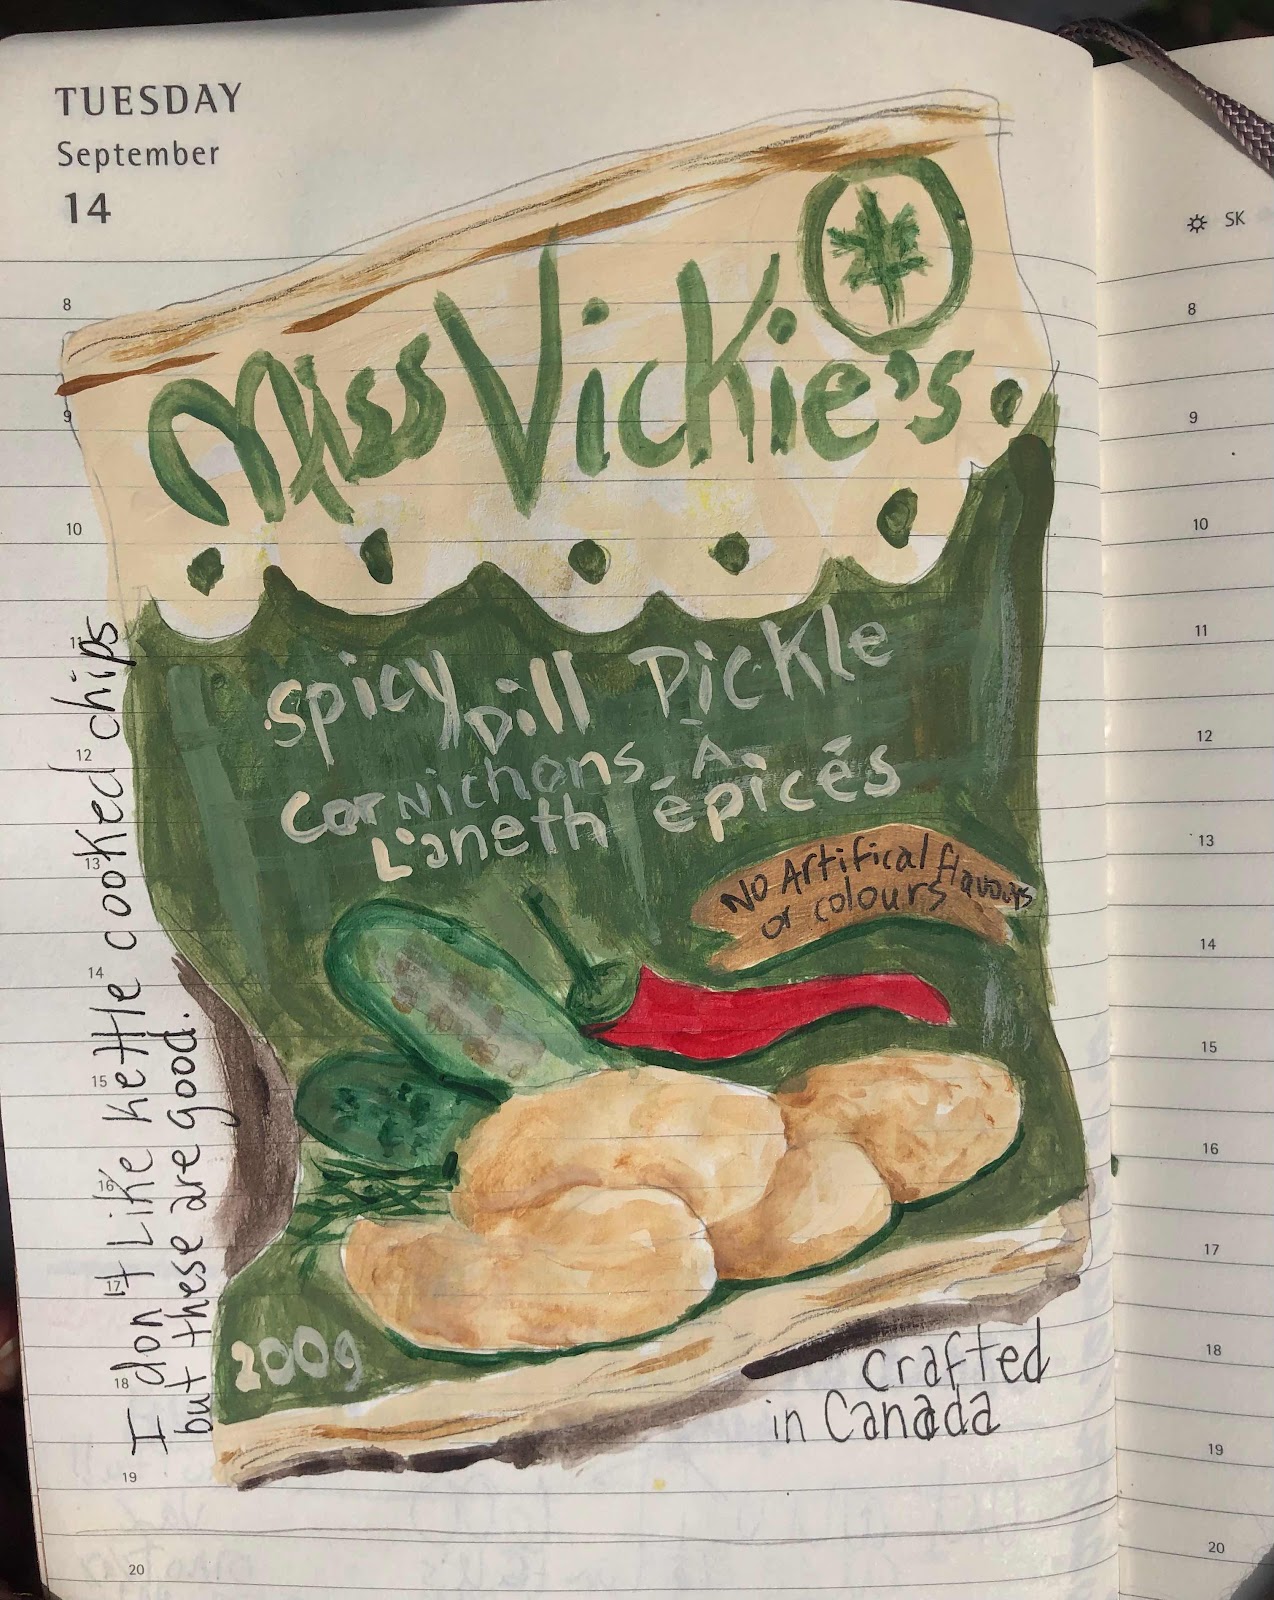 TUESDAY
September
14
SK
8
9
10
11
12
13
14
15
16
17
18
19
20
Miss Vickie's
Spicy Dill Pickle
Cornichons À
L'aneth épicés
No Artifical flavours
or colours
200g
crafted
in Canada
I don't Like kettle cooked chips
but these are good.
8
9
10
11
12
13
14
15
16
17
18
19
20